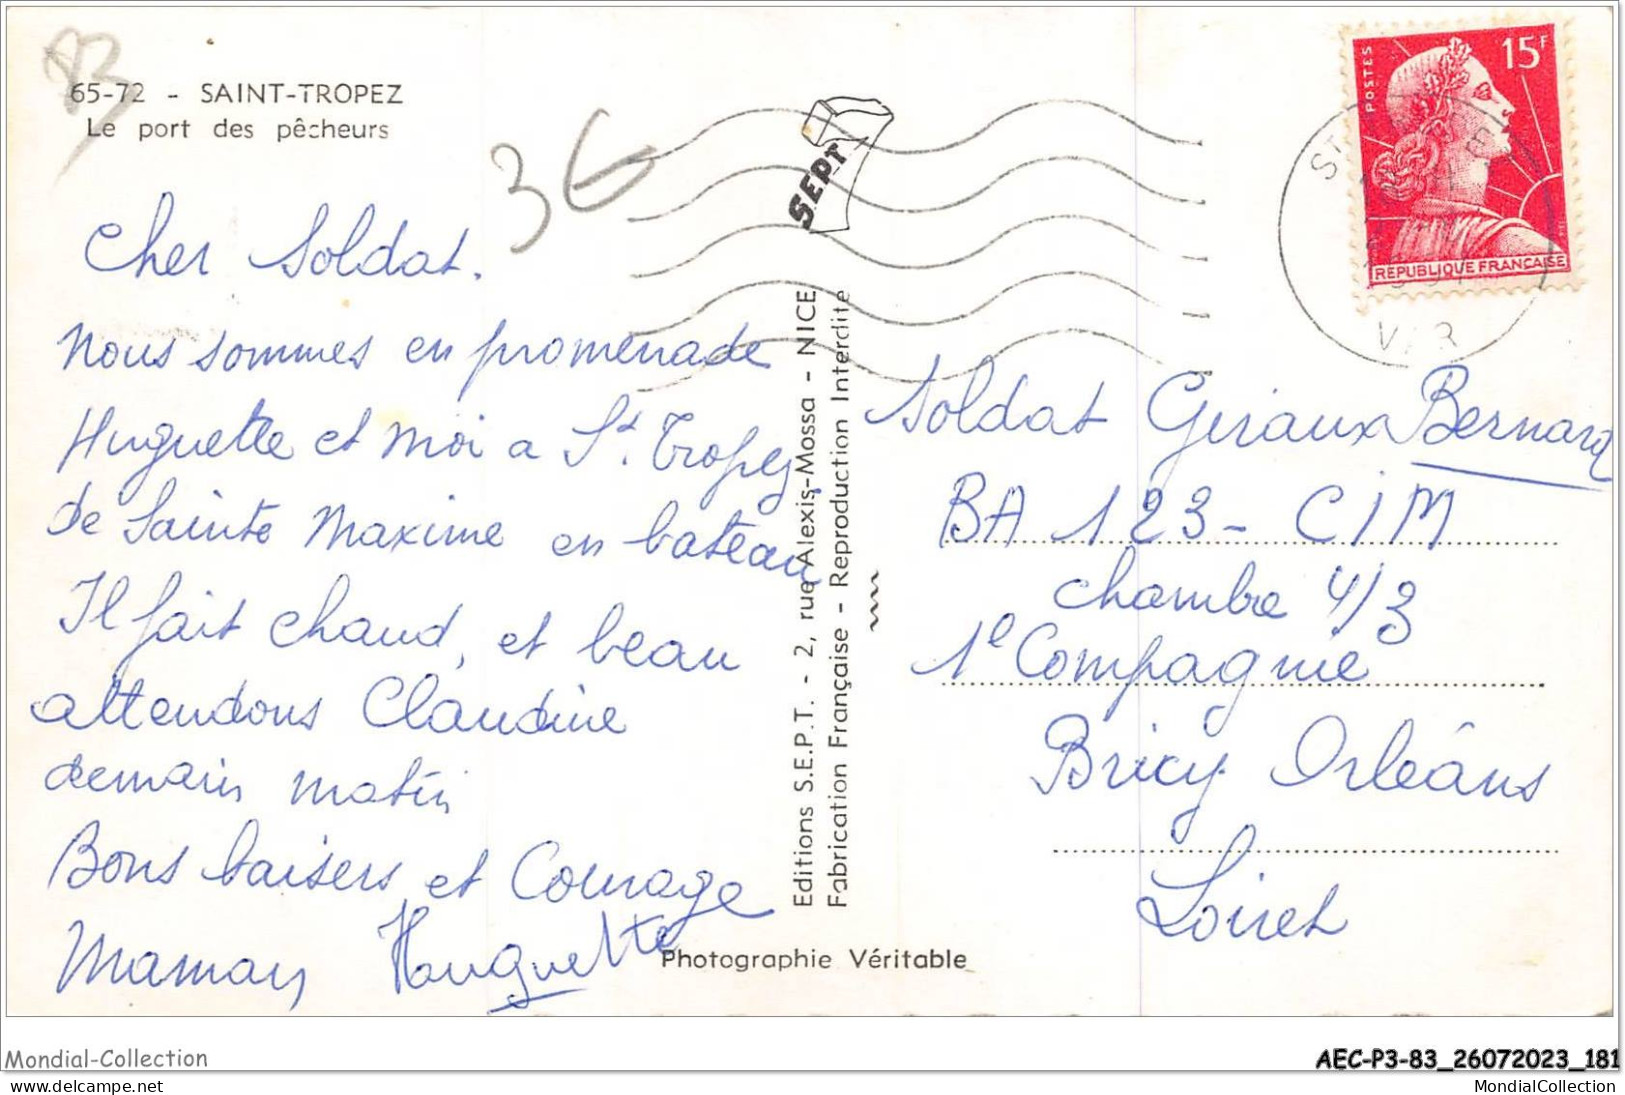 83
65-72 - SAINT-TROPEZ
Le port des pêcheurs
3€
Cher Soldat.
Nous sommes en promenade
Huguette et moi a St. Tropez
de Sainte Maxime en bateau
Il fait chaud, et beau
attendons Claudine
demain matin
Bons baisers et Courage
Maman Huguette
SEPT
Editions S.E.P.T. - 2, rue Alexis-Mossa - NICE
Fabrication Française - Reproduction Interdite
Photographie Véritable
POSTES
15F
REPUBLIQUE FRANÇAISE
ST
VAR
Soldat Geraux Bernard
BA 123 - CIM
chambre 4/3
1e Compagnie
Bricy Orléans
Loiret
Mondial-Collection
AEC-P3-83_26072023_181
www.delcampe.net
MondialCollection